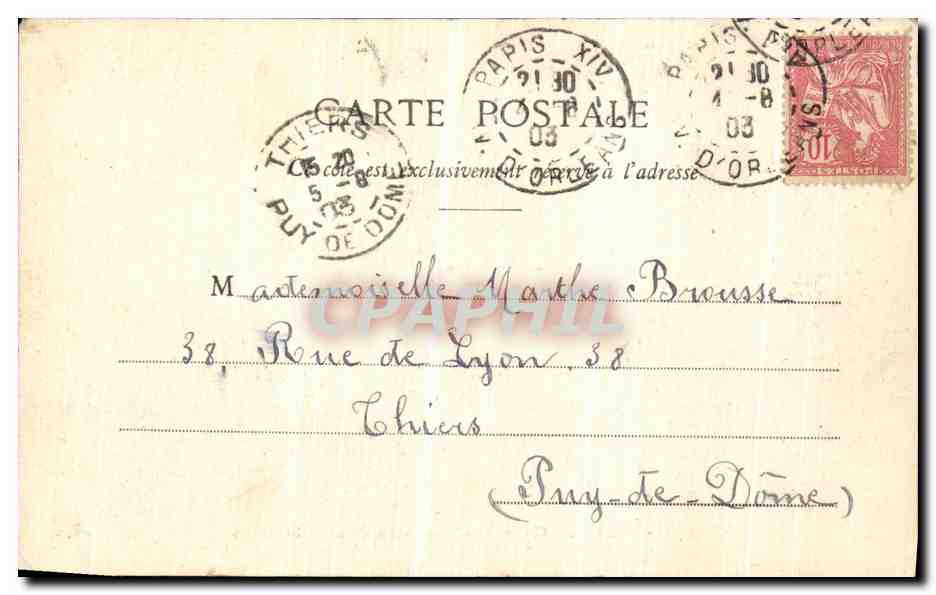 PARIS XIV
21 30
4 -8
03
AV. D'ORLEANS
PARIS
21 30
4 -8
03
D'ORLEANS
10
POSTES
CARTE POSTALE
THIERS
5 -8
03
PUY DE DOME
Ce côté est exclusivement réservé à l'adresse
Mademoiselle Marthe Brousse
CPAPHIL
38, Rue de Lyon. 38
Thiers
(Puy-de-Dôme)